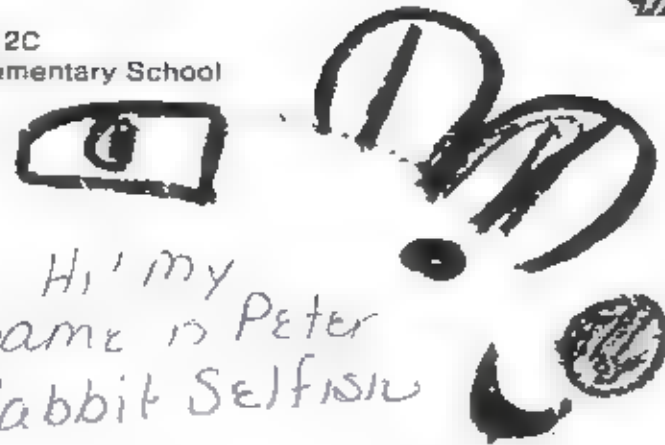 2C
ementary School
Hi' my
ame is Peter
abbit Selfish